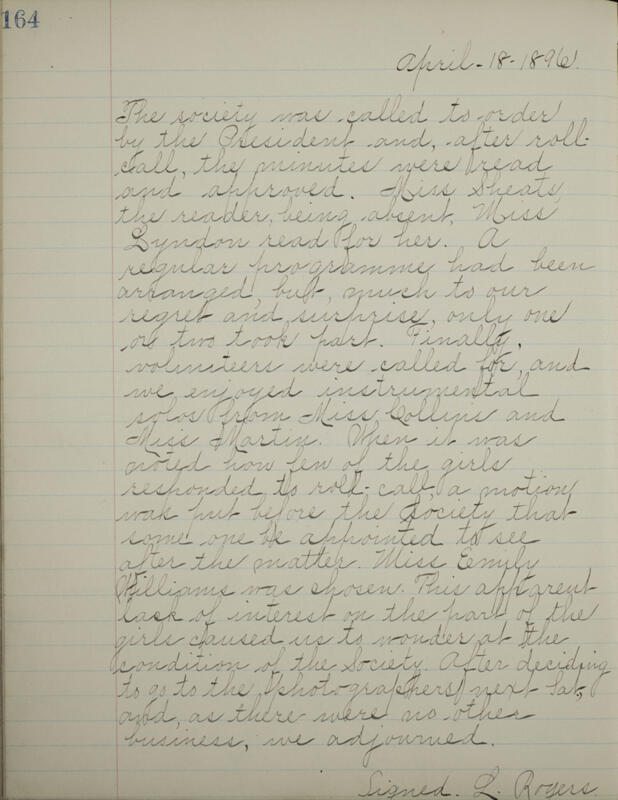 164
April-18-1896.
The society was called to order
by the President and, after roll-
call, the minutes were read
and approved. Miss Sheats,
the reader, being absent, Miss
Lyndon read for her. A
regular programme had been
arranged, but, much to our
regret and surprise, only one
or two took part. Finally,
volunteers were called for, and
we enjoyed instrumental
solos from Miss Collins and
Miss Martin. When it was
noted how few of the girls
responded to roll-call, a motion
was put before the Society that
some one be appointed to see
after the matter. Miss Emily
Williams was chosen. This apparent
lack of interest on the part of the
girls caused us to wonder at the
condition of the Society. After deciding
to go to the photographers next Sat,
and, as there were no other
business, we adjourned.
Signed. L. Rogers.